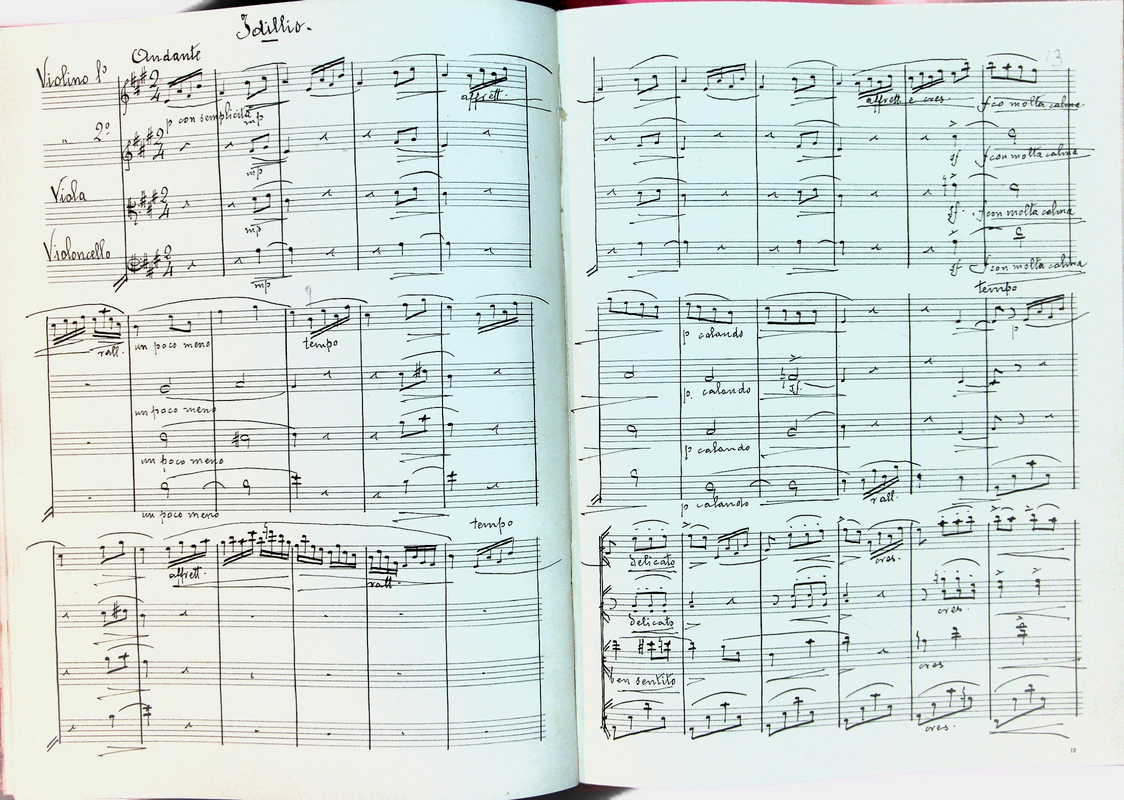 Idillio.
Andante
Violino 1º
p con semplicità
mp
affrett.
" 2º
mp
Viola
mp
Violoncello
mp
rall.
un poco meno
tempo
un poco meno
un poco meno
un poco meno
tempo
affrett.
rall.
3
affrett e cres
f co molta calma
sf f con molta calma
sf. f con molta calma
sf f con molta calma
tempo
p calando
p
p. calando
sf.
p calando
p calando
rall.
delicato
cres.
delicato
cres.
ben sentito
cres
cres.
12